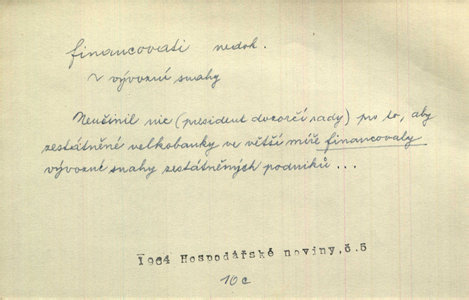 financovati nedok.
~ vývozní snahy
Neučinil nic (president dozorčí rady) pro to, aby
zestátněné velkobanky ve větší míře financovaly
vývozné snahy zestátněných podniků...
1964 Hospodářské noviny, č.5
10c